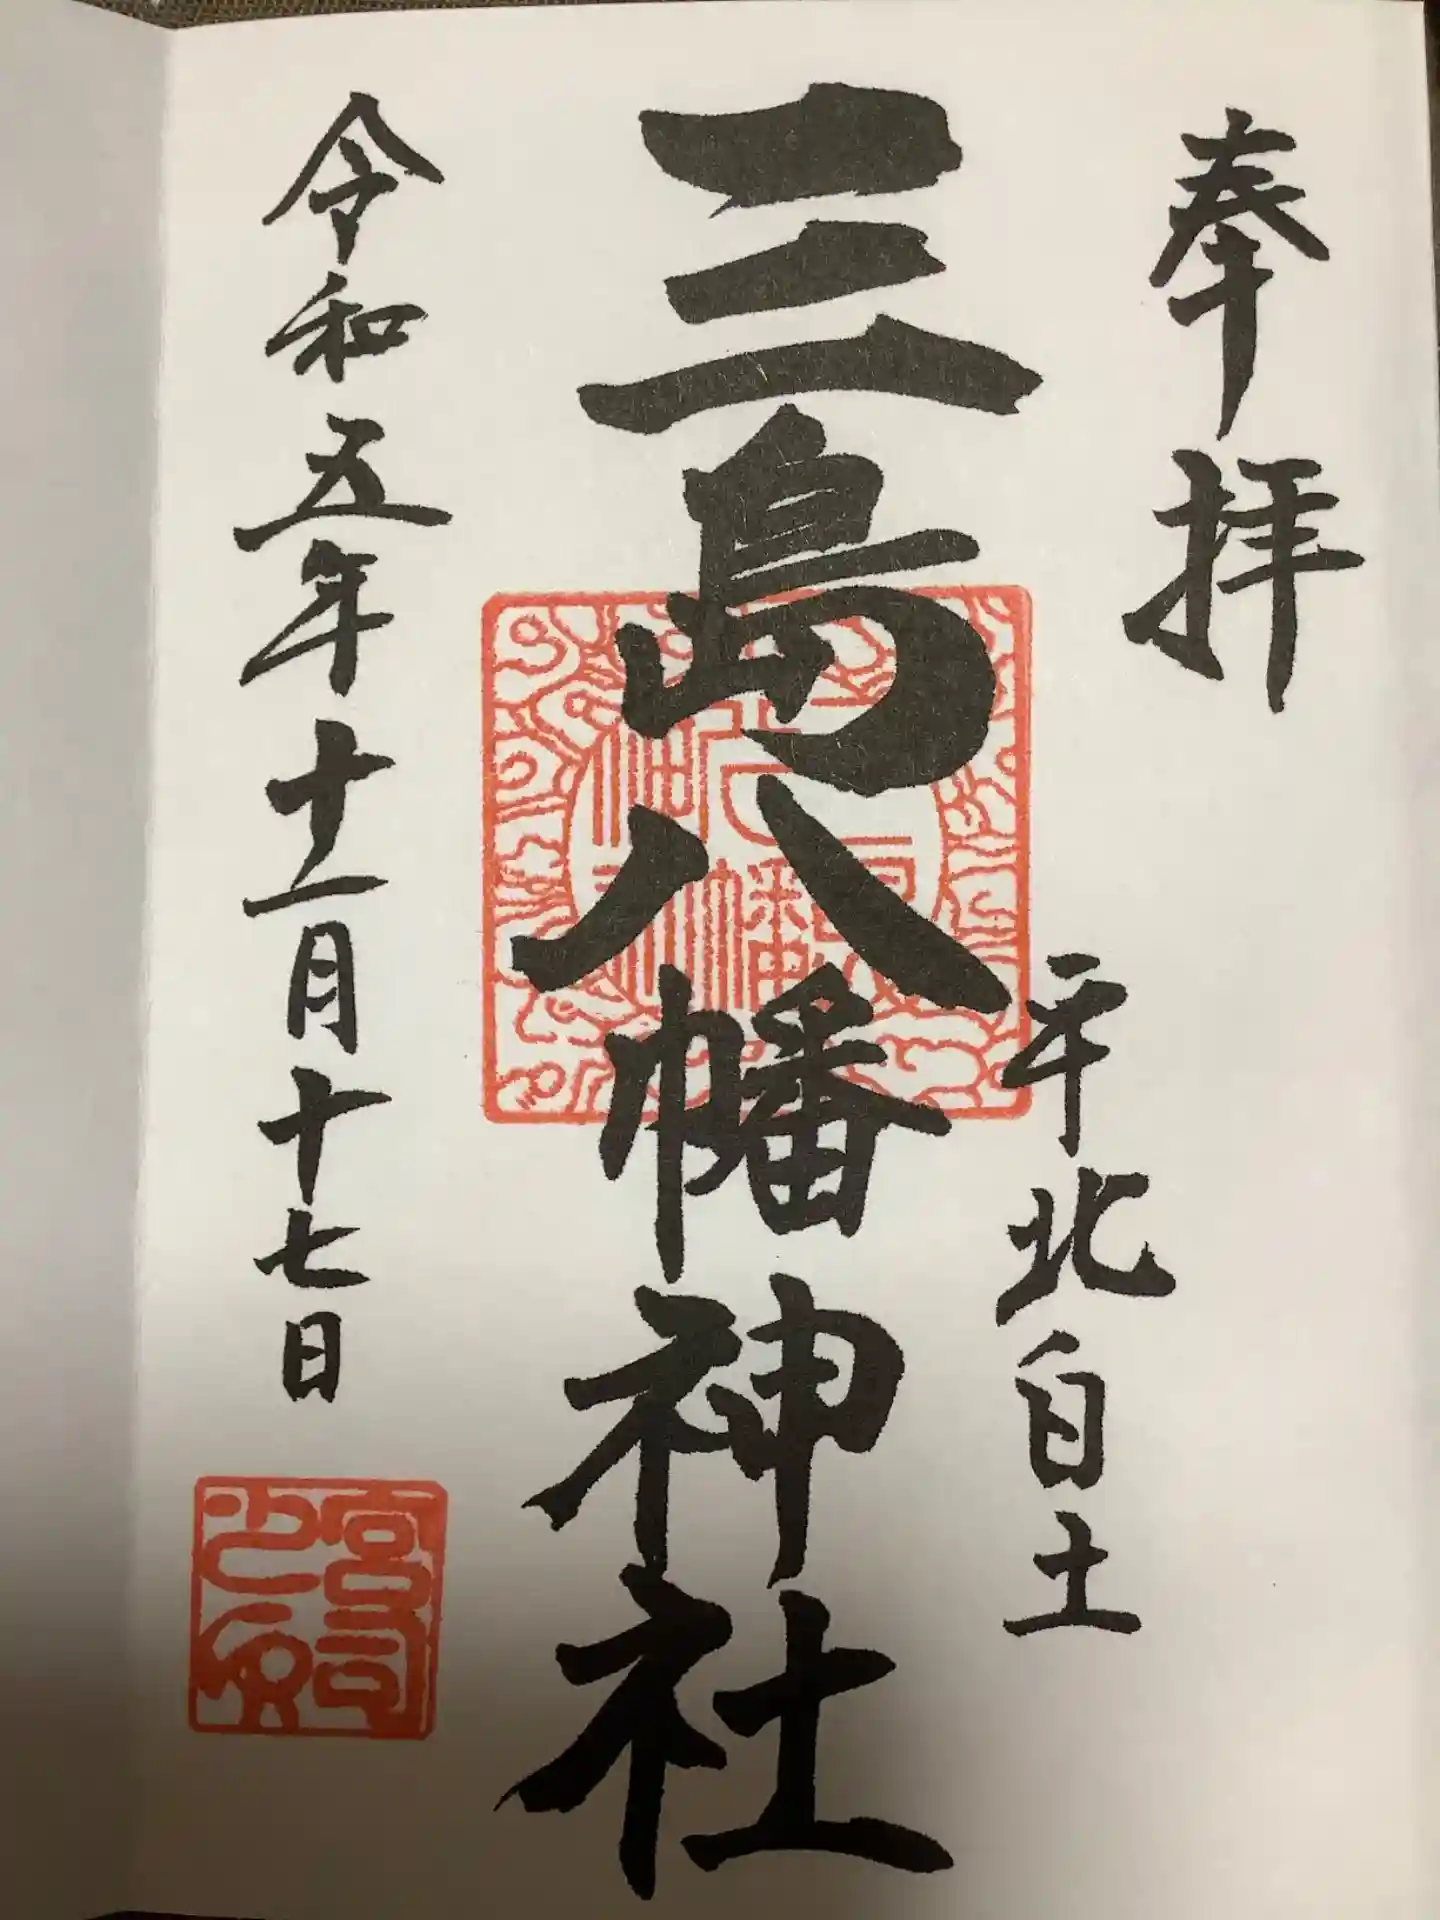 奉拝
平北白土
三島八幡神社
令和五年十一月十七日
宮司之印